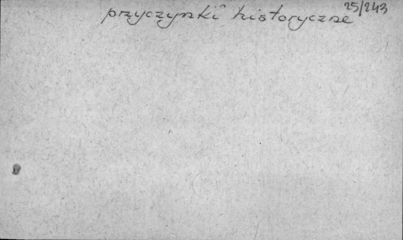 25/243
przyczynki historyczne